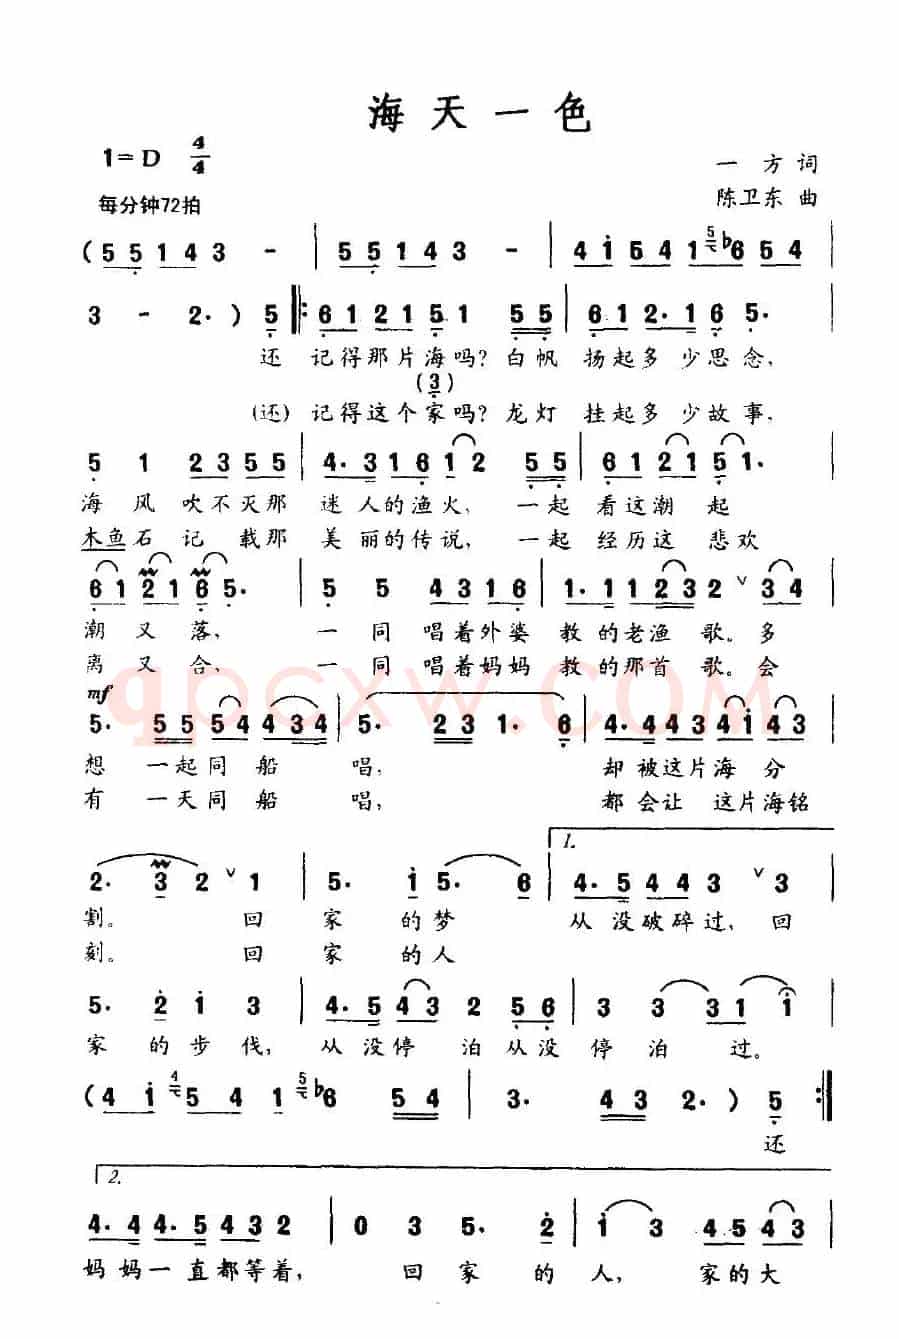 海天一色
1=D 4/4
一方词
每分钟72拍
陈卫东 曲
( 5 5 1 4 3 - | 5 5 1 4 3 - | 4 1 5 4 1 5 ♭6 5 4 |
3 - 2· ) 5 ‖: 6 1 2 1 5 1 5 5 | 6 1 2· 1 6 5· |
还 记得那片海吗? 白帆 扬起多少思念,
(3)
(还) 记得这个家吗? 龙灯 挂起多少故事,
5 1 2 3 5 5 | 4· 3 1 6 1 2 5 5 | 6 1 2 1 5 1· |
海风吹不灭那 迷人的渔火, 一起 看这潮起
木鱼石记载那 美丽的传说, 一起 经历这悲欢
6 1 2 1 6 5· | 5 5 4 3 1 6 | 1· 1 1 2 3 2 ∨ 3 4 |
潮又落, 一同唱着外婆 教的老渔歌。多
离又合, 一同唱着妈妈 教的那首歌。会
mf
5· 5 5 5 4 4 3 4 | 5· 2 3 1· 6 | 4· 4 4 3 4 1 4 3 |
想一起同船 唱, 却被这片海分
有一天同船 唱, 都会让这片海铭
1.
2· 3 2 ∨ 1 | 5· 1 5· 6 | 4· 5 4 4 3 ∨ 3 |
割。 回 家的梦 从没破碎过, 回
刻。 回 家的人
5· 2 1 3 | 4· 5 4 3 2 5 6 | 3 3 3 1 1 |
家的步伐, 从没停泊从没 停泊过。
( 4 1 4 5 4 1 5 ♭6 5 4 | 3· 4 3 2· ) 5 :‖
还
2.
4· 4 4· 5 4 3 2 | 0 3 5· 2 | 1 3 4 5 4 3 |
妈妈一直都等着, 回家的 人, 家的大
qpcxw.com